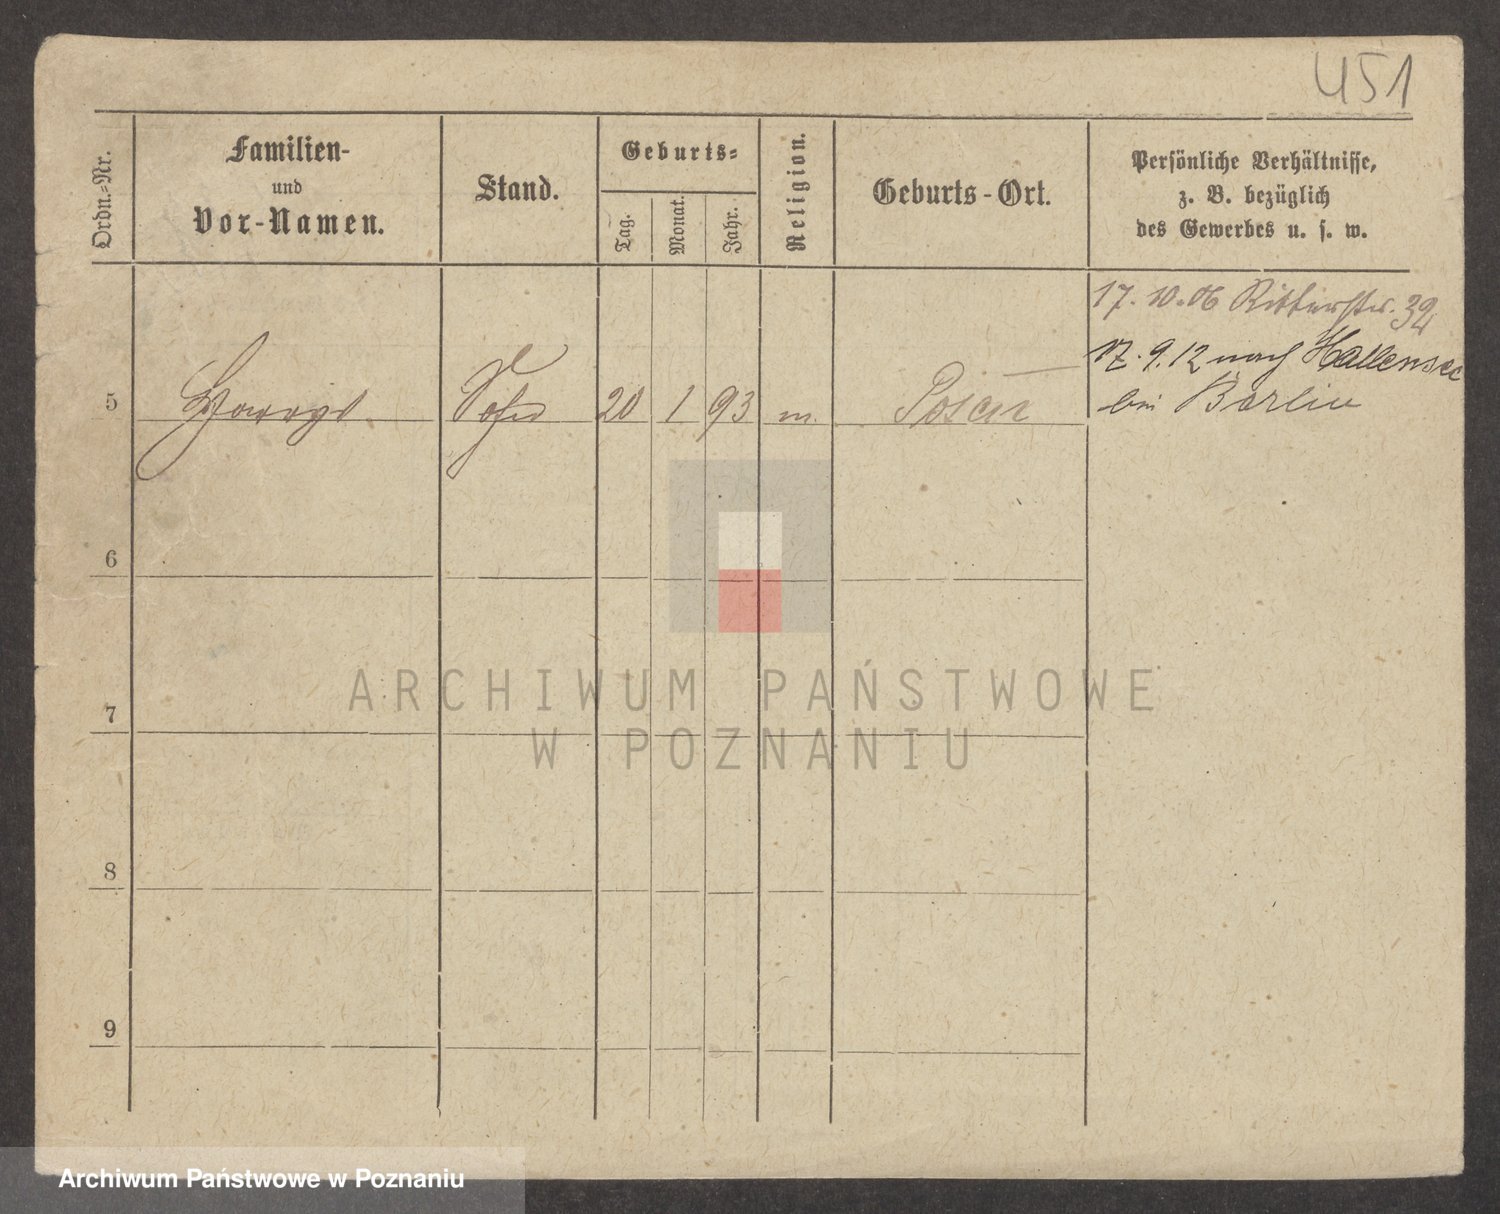 451
Ordn.-Nr.
Familien-
und
Vor-Namen.
Stand.
Geburts-
Tag.
Monat.
Jahr.
Religion.
Geburts-Ort.
Persönliche Verhältnisse,
z. B. bezüglich
des Gewerbes u. s. w.
17.10.06 Ritterstr. 32
17.9.12 nach Hallensee
5 Sohn 20 1 93 m. Posen bei Berlin
6
7
8
9
ARCHIWUM PAŃSTWOWE
W POZNANIU
Archiwum Państwowe w Poznaniu